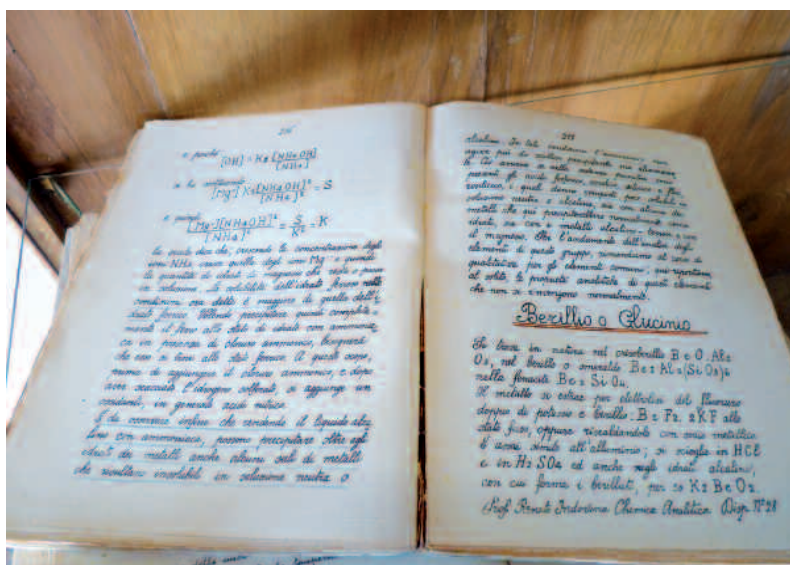 216
e perché
[OH] = K2 [NH4OH] / [NH4]
si ha
[Mg··] K2 [NH4OH]² / [NH4]² = S
e quindi
[Mg··][NH4OH]² / [NH4]² = S / K² = K
la quale dice che, crescendo la concentrazione degli
ioni NH4 cresce quella degli ioni Mg·· e quindi
la quantità di idrato di magnesio che resta o passa
in soluzione. La solubilità dell'idrato ferroso nelle
condizioni ora dette è maggiore di quella dell'i-
drato ferrico. Volendo precipitare quindi completa-
mente il ferro allo stato di idrato con ammoniaca
ca in presenza di cloruro ammonico, bisognerà
che esso si trovi allo stato ferrico. A questo scopo,
prima di aggiungere il cloruro ammonico, e dopo
aver scacciato l'idrogeno solforato, si aggiunge un
ossidante, in generale acido nitrico.
È da osservare infine che rendendo il liquido alca-
lino con ammoniaca, possono precipitare oltre agli
idrati dei metalli anche alcuni sali di metalli
che risultano insolubili in soluzione neutra o
alcalina. In tali condizioni l'ammoniaca non
agisce più da
presenti gli acidi fosforico, ossalico
i quali danno
soluzione neutra e alcalina, sia con alcuni dei
metalli che qui precipiterebbero normalmente come
idrati, sia con i metalli alcalino-terrosi e con
il magnesio. Per l'andamento dell'analisi degli
elementi di questo gruppo, rimandiamo al corso di
qualitativa per gli elementi comuni; qui riportiamo
al solito le proprietà analitiche di quegli elementi
che non si rinvengono normalmente.
Berillio o Glucinio
Si trova in natura nel crisoberillo BeO.Al2
O3, nel berillo o smeraldo Be3Al2(SiO3)6
nella fenacite Be2SiO4.
Il metallo si estrae per elettrolisi del fluoruro
doppio di potassio e berillio BeF2.2KF allo
stato fuso, oppure riscaldandolo con sodio metallico.
È assai simile all'alluminio; si scioglie in HCl
e in H2SO4 ed anche negli idrati alcalini,
con cui forma i berillati, per es K2BeO2.
Prof. Renato Indovina Chimica Analitica Disp. N° 28